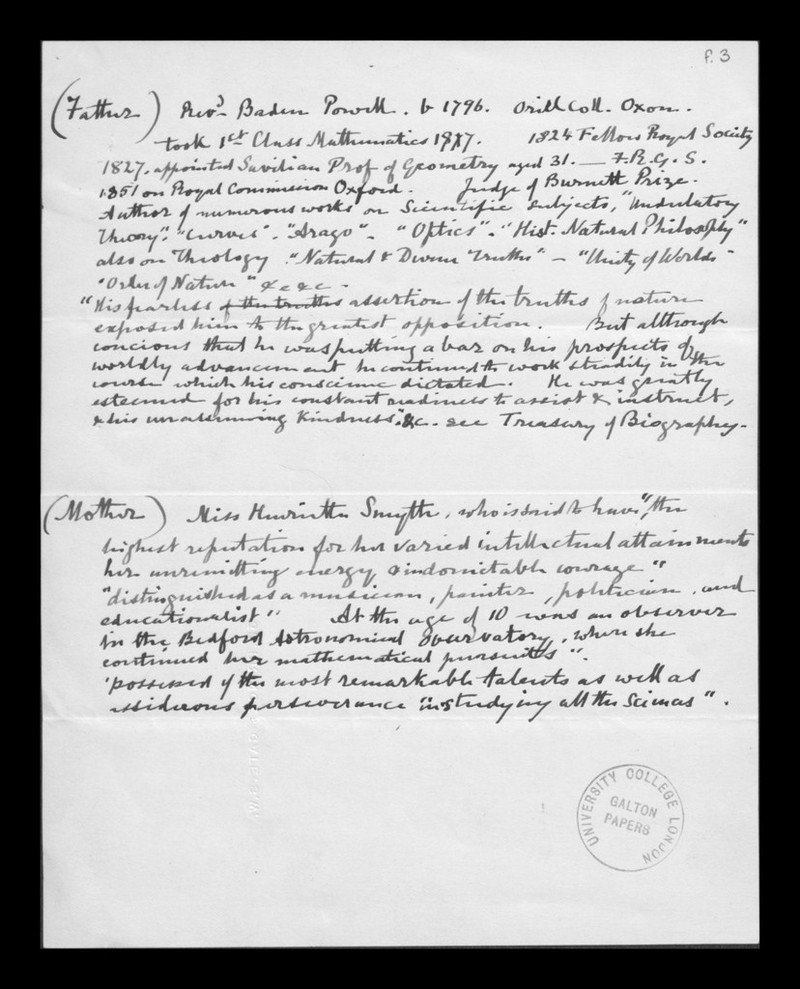 f. 3
(Father) Revd. Baden Powell. b 1796. Oriel Coll. Oxon.
took 1st Class Mathematics 1817. 1824 Fellow Royal Society
1827. appointed Savilian Prof of Geometry aged 31. — F.R.G.S.
1851 on Royal Commission Oxford. Judge of Burnett Prize.
Author of numerous works on Scientific subjects, "Undulatory
Theory". "Curves". "Arago". "Optics". "Hist. Natural Philosophy"
also on Theology. "Natural & Divine Truths" - "Unity of Worlds"
"Order of Nature" &c &c.
"His fearless of the truths assertion of the truths of nature
exposed him to the greatest opposition. But although
concious that he was putting a bar on his prospects of
worldly advancement he continued to work steadily in the
course which his conscience dictated. He was greatly
esteemed for his constant readiness to assist & instruct,
& his unassuming kindness". &c. see Treasury of Biography.
(Mother) Miss Henrietta Smyth, who is said to have "the
highest reputation for her varied intellectual attainments
her unremitting energy & indomitable courage"
"distinguished as a musician, painter, politician, and
educationalist" At the age of 10 was an observer
in the Bedford Astronomical Observatory, where she
continued her mathematical pursuits".
"possessed of the most remarkable talents as well as
assiduous perseverance in studying all the Sciences".
UNIVERSITY COLLEGE LONDON
GALTON
PAPERS